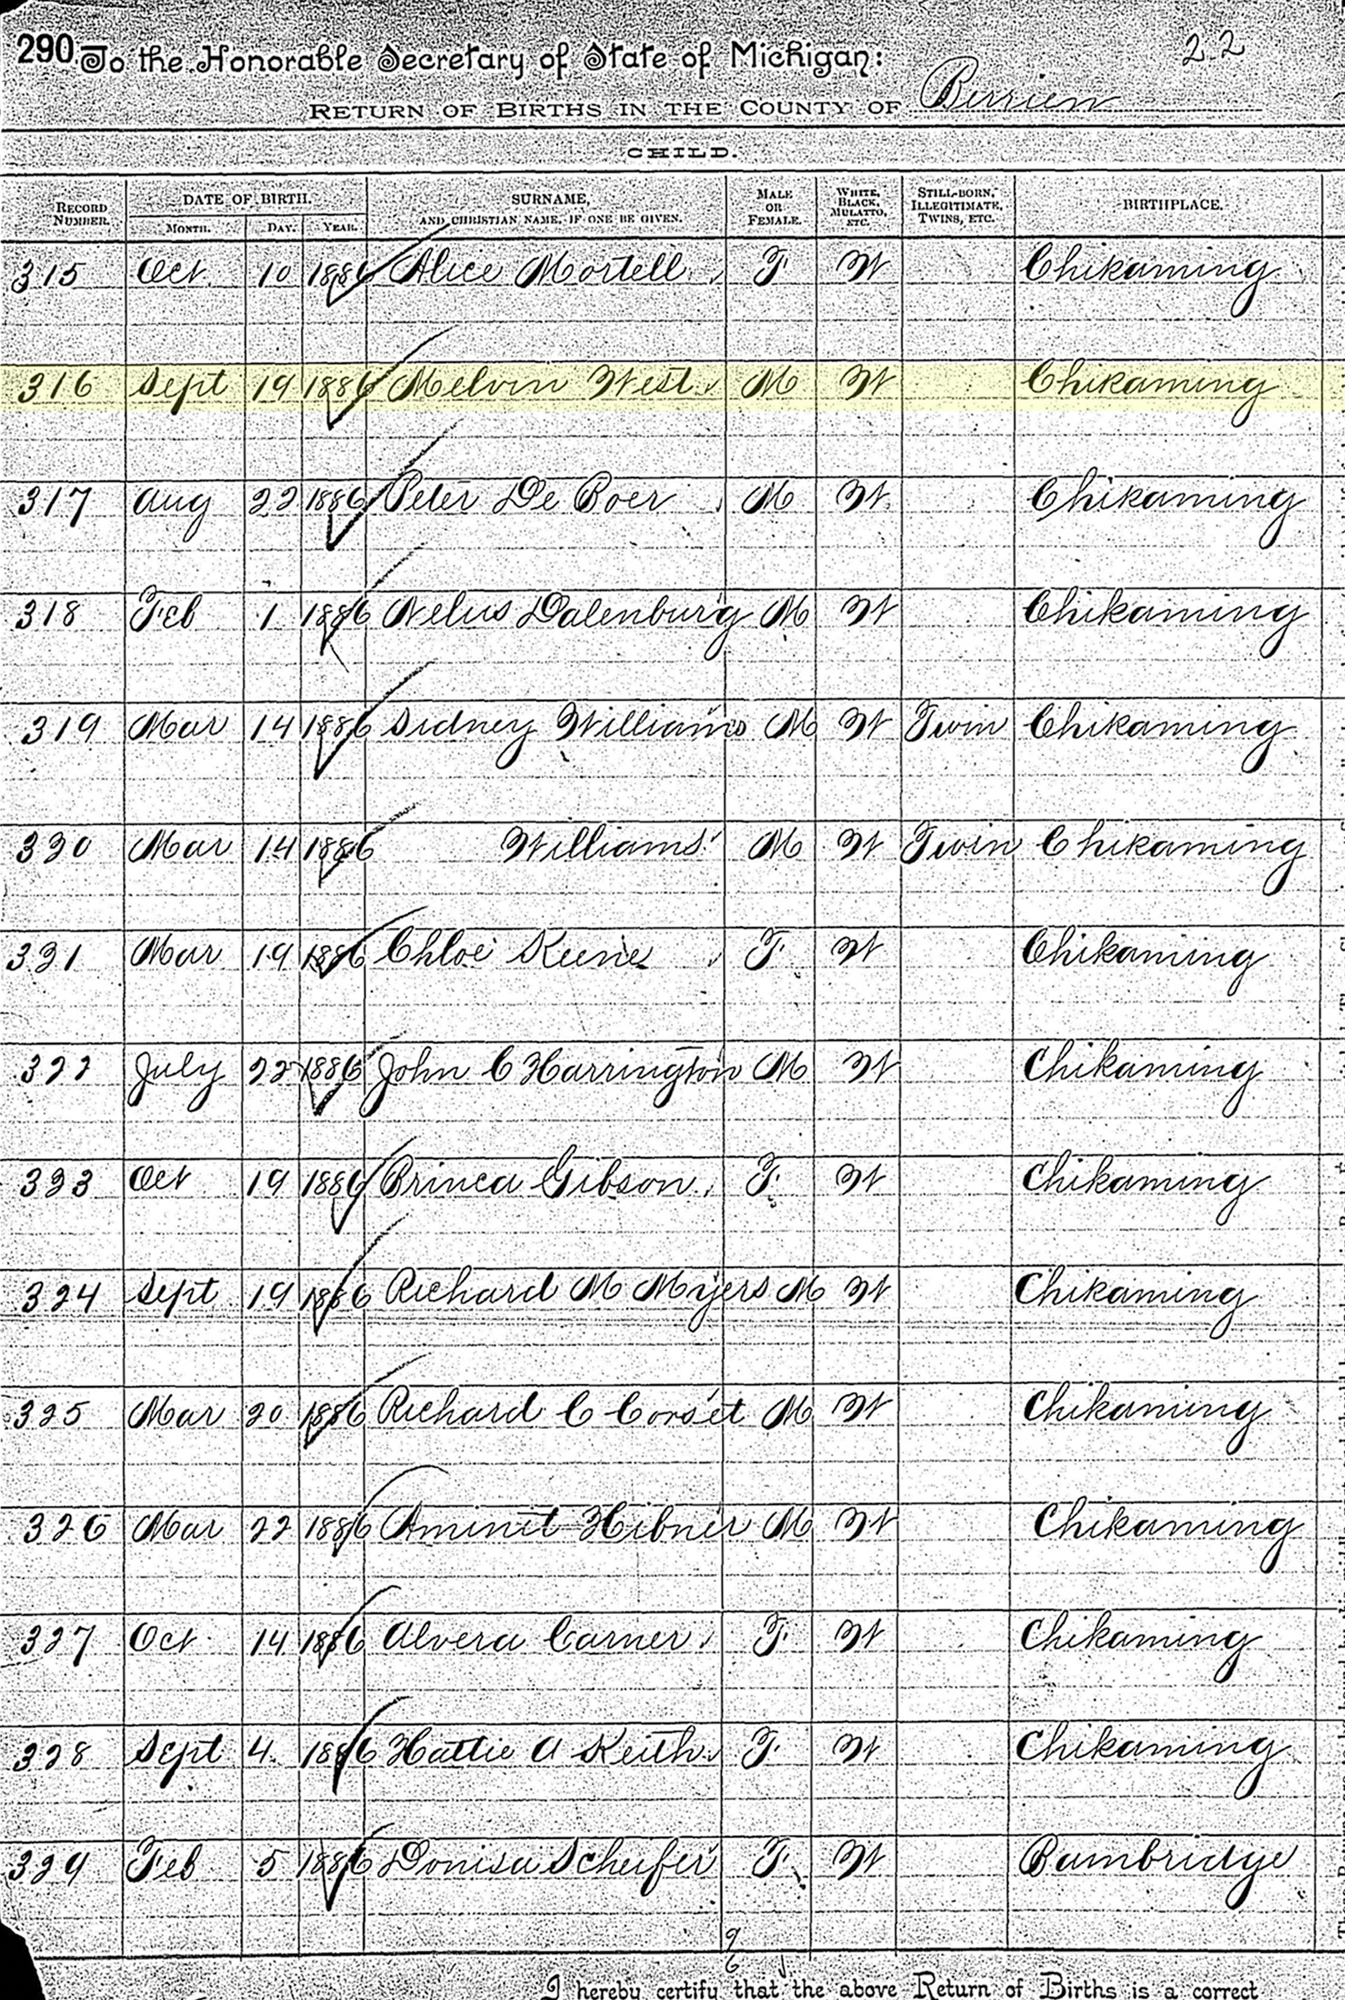 290 To the Honorable Secretary of State of Michigan: 22
RETURN OF BIRTHS IN THE COUNTY OF Berrien
CHILD.
RECORD NUMBER. DATE OF BIRTH. MONTH. DAY. YEAR. SURNAME, AND CHRISTIAN NAME, IF ONE BE GIVEN. MALE OR FEMALE. WHITE, BLACK, MULATTO, ETC. STILL-BORN, ILLEGITIMATE, TWINS, ETC. BIRTHPLACE.
315 Oct 10 1886 Alice Mortell F W Chikaming
316 Sept 19 1886 Melvin West M W Chikaming
317 Aug 22 1886 Peter De Boer M W Chikaming
318 Feb 1 1886 Nelus Dalenburg M W Chikaming
319 Mar 14 1886 Sidney Williams M W Twin Chikaming
320 Mar 14 1886 Williams M W Twin Chikaming
321 Mar 19 1886 Chloe Keene F W Chikaming
322 July 22 1886 John C Harrington M W Chikaming
323 Oct 19 1886 Gibson F W Chikaming
324 Sept 19 1886 Richard M Myers M W Chikaming
325 Mar 20 1886 Richard C Corset M W Chikaming
326 Mar 22 1886 Hibner M W Chikaming
327 Oct 14 1886 Alvera Carner F W Chikaming
328 Sept 4 1886 Hattie A Keith F W Chikaming
329 Feb 5 1886 Scheifer F W Bambridge
I hereby certify that the above Return of Births is a correct